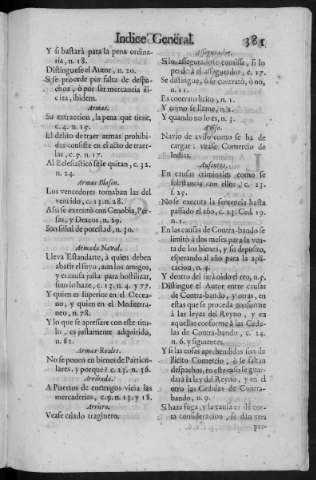 Indice General.
381
Y si bastarà para la pena ordina-
ria, n. 18.
Distinguese el Autor, n. 20.
Si se procede por falta de despa-
chos, ò por ser mercancia ili-
cita, ibidem.
Armas.
Su extraccion, la pena que tiene,
c. 4. n. 15.
El delito de traer armas prohibi-
das consiste en el acto de traer-
las, c. 7. n. 17.
Al Eclesiastico se le quitan, c. 32.
n. 24.
Armas Blason.
Los vencedores tomaban las del
vencido, c. 13. n. 28.
Assi se executò con Cenobia, Per-
sas, y Dracos, n. 29.
Son señal de potestad, n. 30.
Armada Naval.
Lleva Estandarte, à quien deben
abatir el suyo, aun los amigos,
y es causa justa para hostilizar,
sino lo hace, c. 13. n. 4. y 77.
Y quien es superior en el Oceea-
no, y quien en el Mediterra-
neo, n. 78.
Y lo que se apressare con este titu-
lo, es justamente adquirido,
n. 81.
Armar Reales.
No se ponen en bienes de Particu-
lares, y porquè? c. 13. n. 36.
Arribada.
A Puertos de enemigos vicia las
mercaderias, c. 9. n. 13. y 18.
Arriero.
Vease criado traginero.
Assegurador.
Si lo asseguradose comissa, si lo
perderà el assegurador, c. 17.
Se distinguè, si lo conociò, ò no,
n. 11.
Es contrato licito, n. 1.
Y como se llama, n. 2.
Y quando no lo es, n. 3.
Aviso.
Navio de aviso como se ha de
cargar, vease Comercio de
Indias.
Ausentes.
En causas criminales como se
substancia con ellos, c. 23.
n. 25.
No se executa la sentencia hasta
passado el año, c. 23. Ced. 19.
n. 1.
En las causas de Contra-bando se
limitò à dos meses para la ven-
ta de los bienes, y su deposito,
esperando al año para la apli-
cacion, n. 4.
Y dentro del serà oìdo el reo, n. 5.
Distingue el Autor entre causas
de Contra-bando, y otras, en
estas que se proceda conforme
à las leyes del Reyno, y en
aquellas conforme à las Cedu-
las de Contra-bando, c. 24.
n. 6. y siguientes.
Y si las cosas aprehendidas son de
ilicito Comercio, ò se saltan
despachos, en este caso se guar-
darà la ley del Reyno, y en el
otro las Cedulas de Contra-
bando, n. 9.
Si haze fuga, y la causa es de cor-
ta consideracion, se dàn tres
pre-